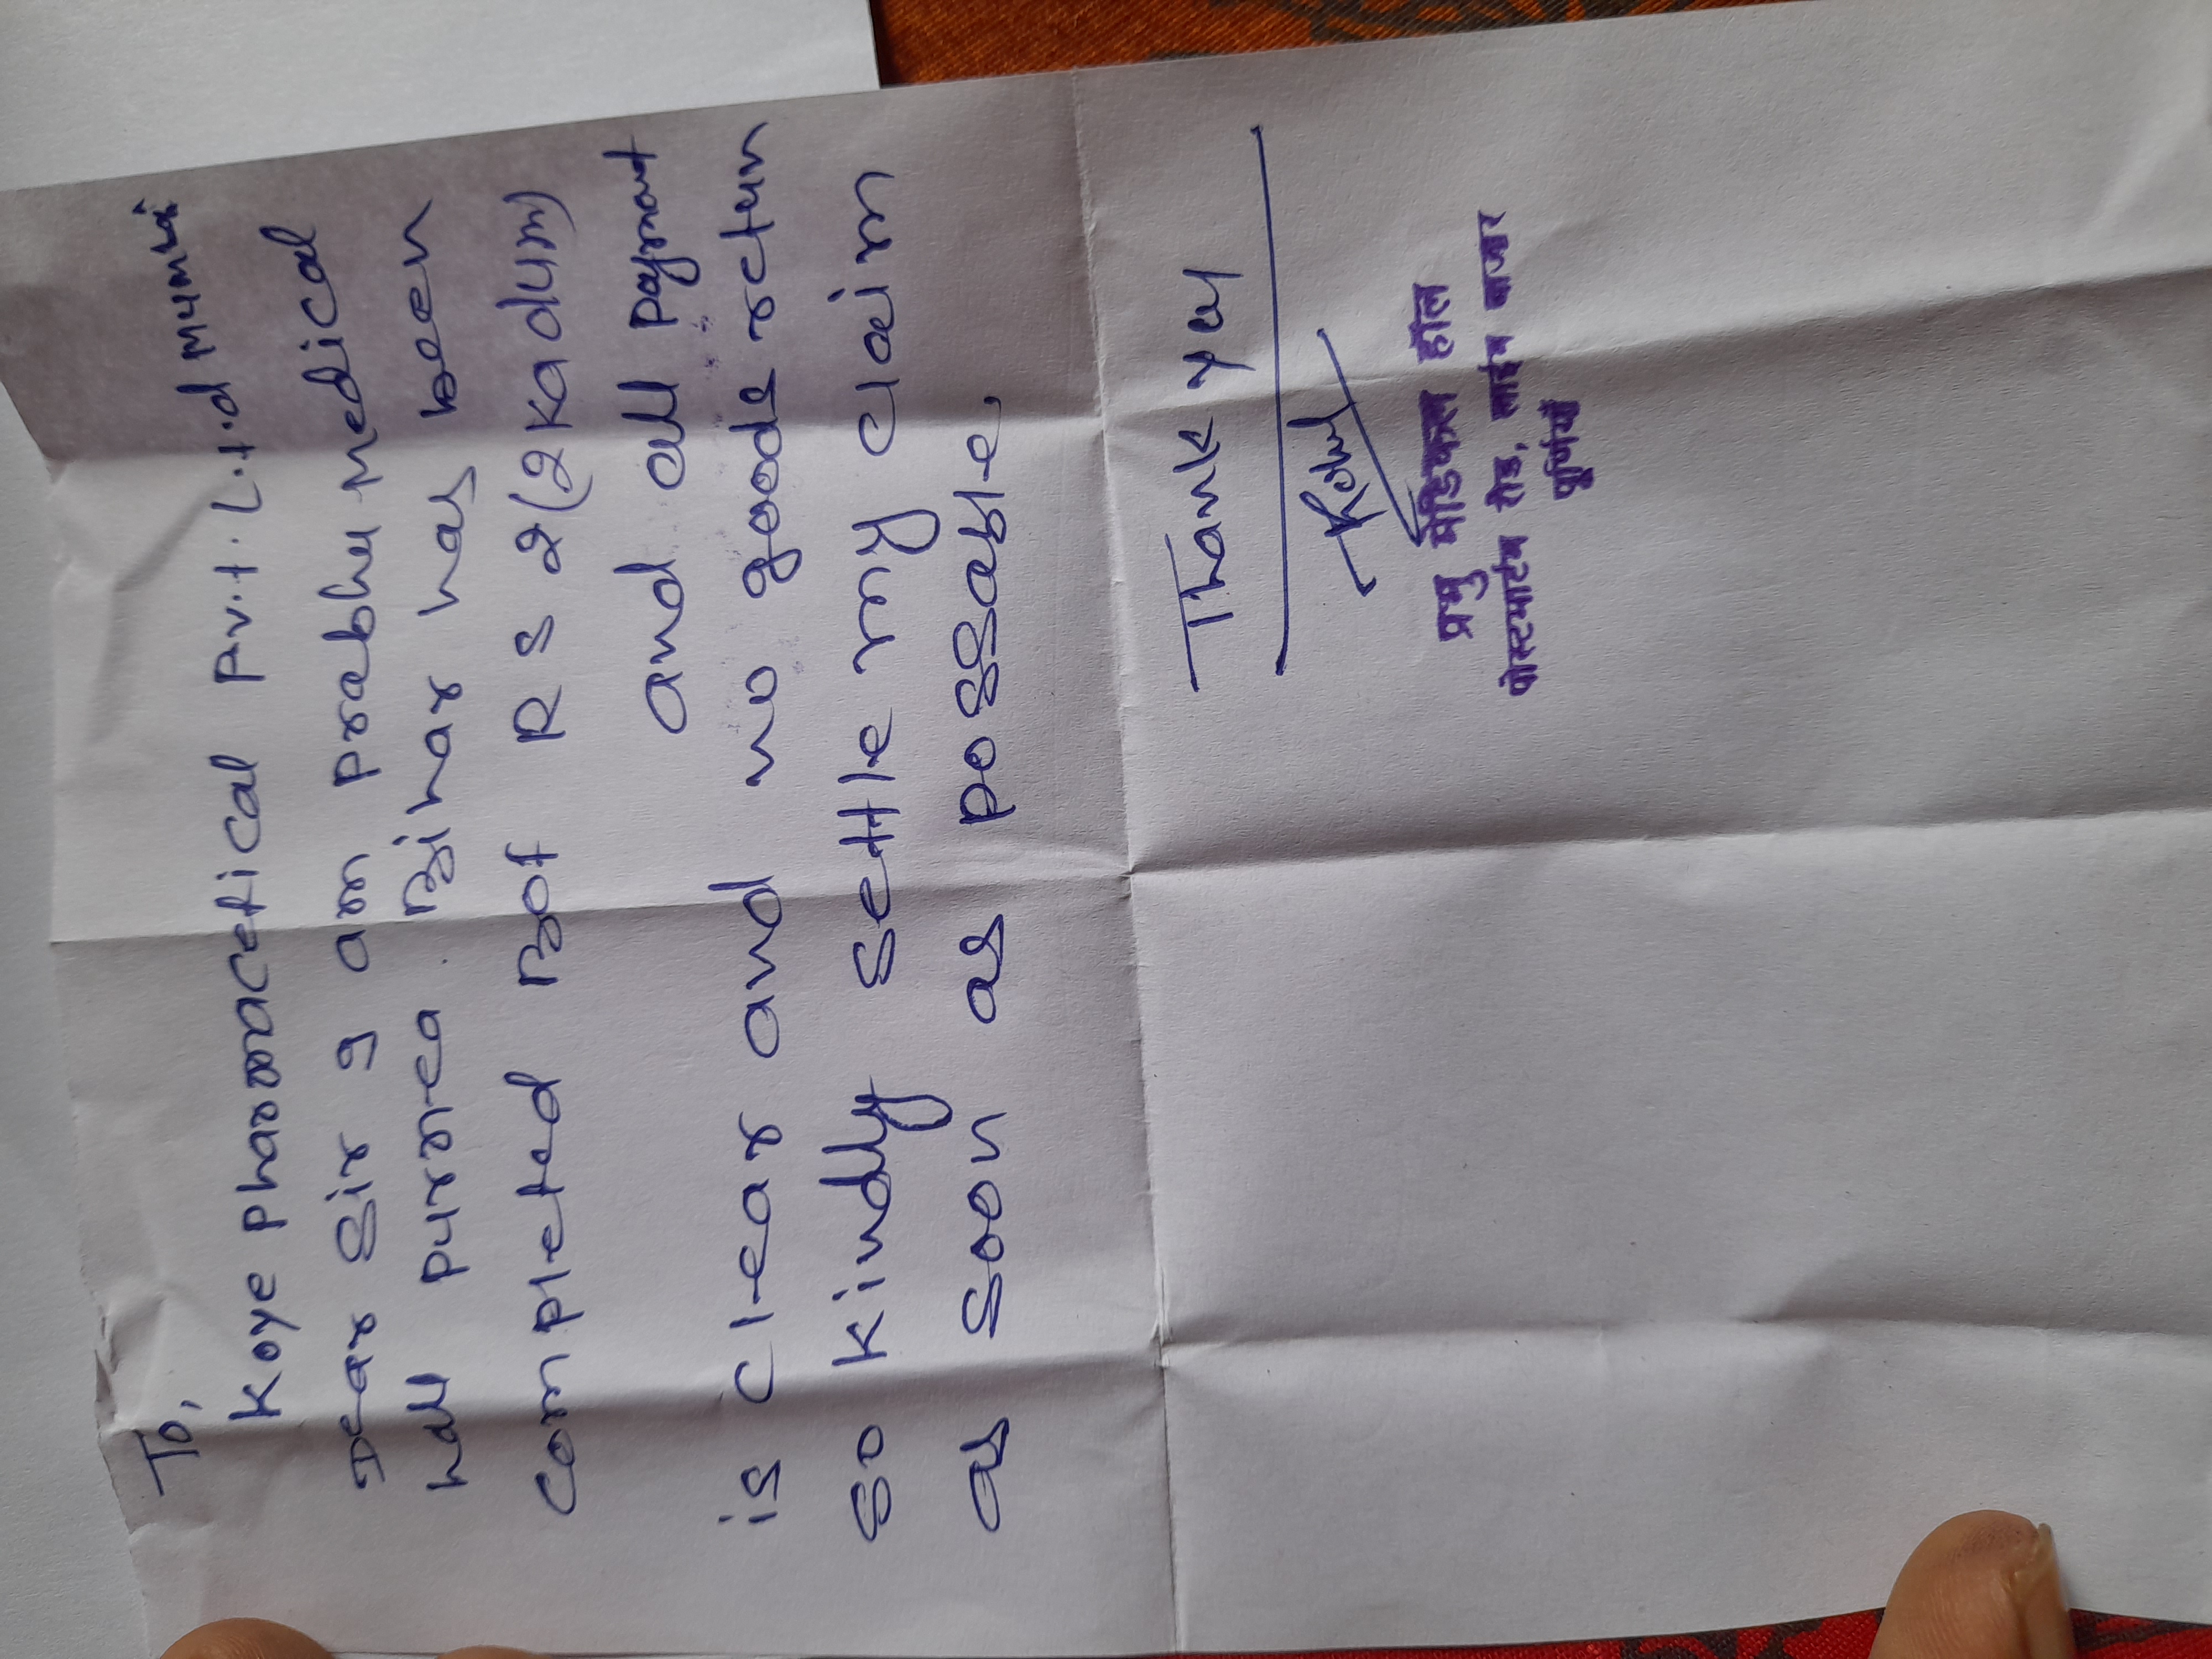 To,
Koye pharmacetical Pvt. L.t.d Mumbai
Dear Sir I am prabhu Medical
hall purnea Bihar has been
completed Bof RS 2(2Kadum)
and all payment
is clear and no goods retun
so kindly settle my claim
as soon as possable,
Thank you
प्रभु मेडिकल हॉल
पोस्टमार्टम रोड, लाईन बाजार
पुर्णियाँ